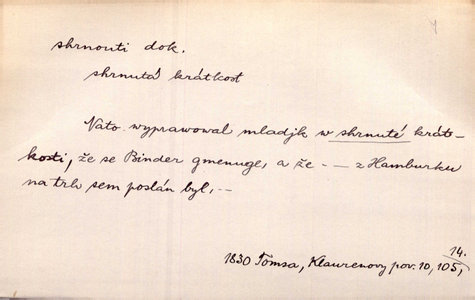 shrnouti dok.
shrnutá krátkost
Nato wyprawowal mladjk w shrnuté krát-
kosti, že se Binder gmenuge, a že - — z Hamburku
na trh sem poslán byl, --
1830 Tomsa, Klaurenovy pov. 10, 105, 14.